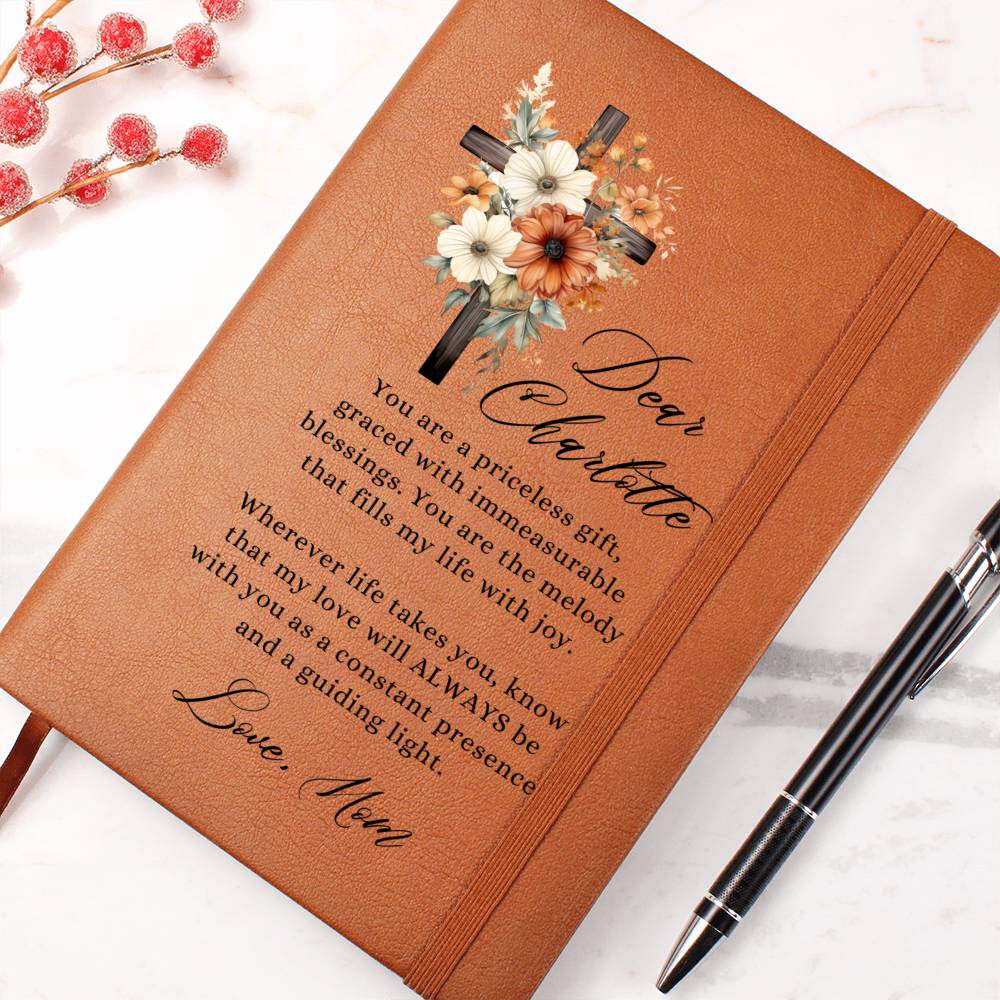 Dear
Charlotte
You are a priceless gift,
graced with immeasurable
blessings. You are the melody
that fills my life with joy.
Wherever life takes you, know
that my love will ALWAYS be
with you as a constant presence
and a guiding light.
Love, Mom